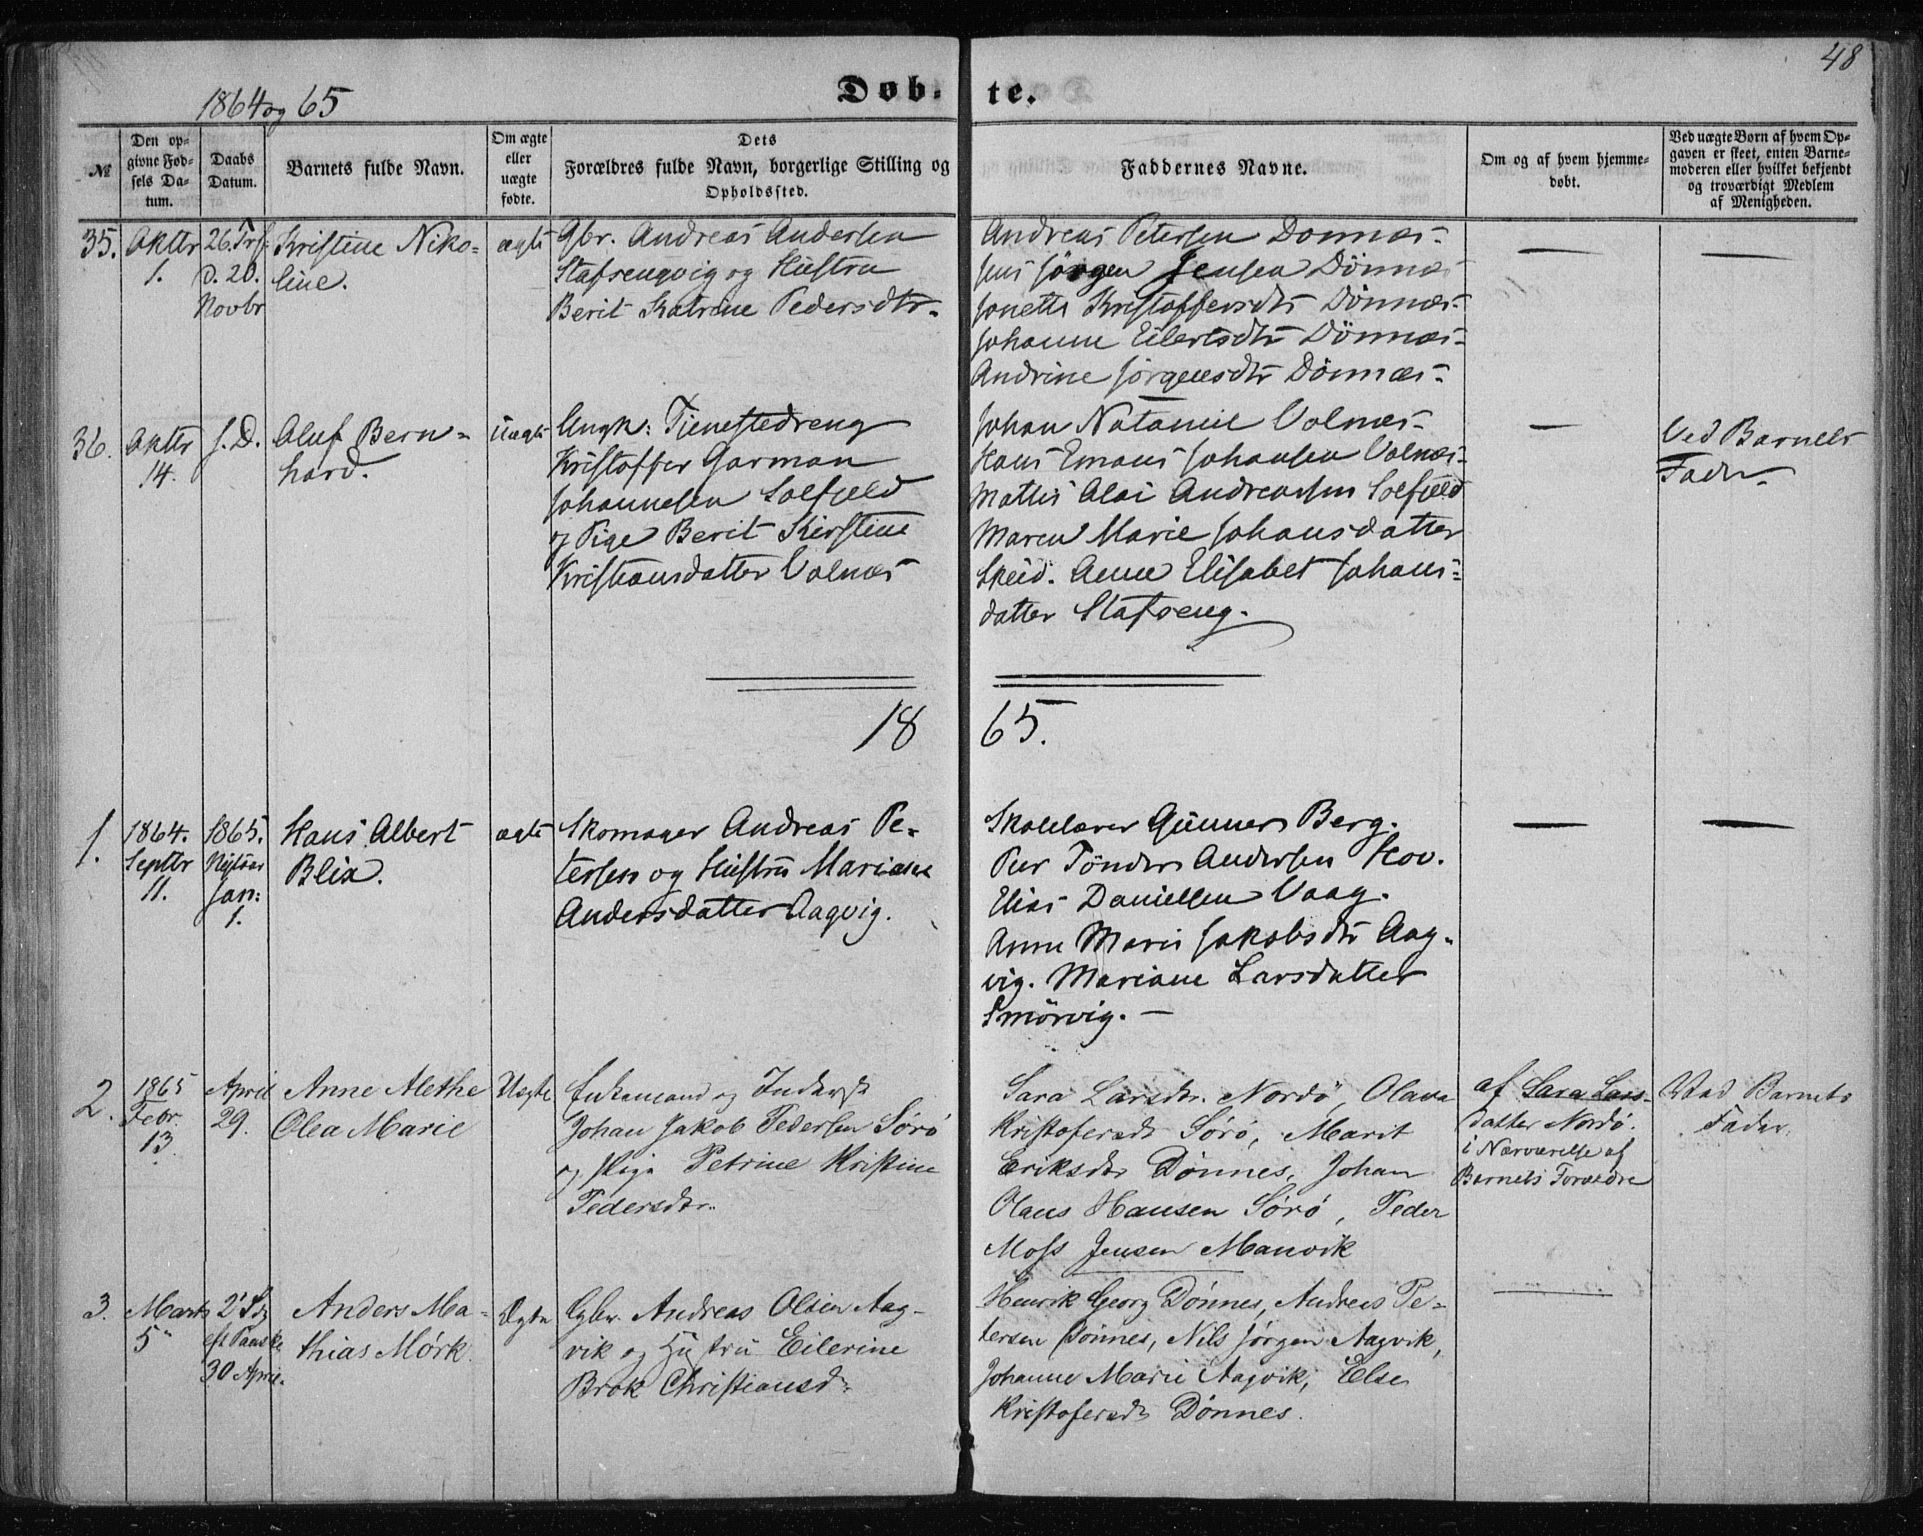 48
1864 og 65
Døb-
te.
№
Den op-
givne Fød-
sels Da-
tum.
Daabs
Datum.
Barnets fulde Navn.
Om ægte
eller
uægte
fødte.
Dets
Forældres fulde Navn, borgerlige Stilling og
Opholdssted.
Faddernes Navne.
Om og af hvem hjemme-
døbt.
Ved uægte Børn af hvem Op-
gaven er skeet, enten Barne-
moderen eller hvilket bekjendt
og troværdigt Medlem
af Menigheden.
35.
Oktbr
1.
26. Trf
d. 20.
Novbr
Kristine Niko-
line.
ægte
Gbr. Andreas Andersen
Stafsengvig og Hustru
Berit Katrine Pedersdtr.
Andreas Petersen Dønnæs.
Jens Jørgen Jensen Dønnæs
Jonette Kristoffersdtr Dønnæs.
Johanne Eilertsdtr Dønnæs.
Andrine Jørgensdtr Dønnæs.
—
—
36.
Oktbr
14.
s. D.
Oluf Bern-
hard.
Uægte
Ungk: Tjenestedreng
Kristoffer Garman
Johannesen Solfjeld
og Pige Berit Kirstine
Kristiansdatter Volnæs
Johan Nataniel Volnæs.
Hans Emaus Johansen Volnæs.
Mattis Alai Andreassen Solfjeld
Maren Marie Johansdatter
Skeid. Anne Elisabet Johans-
datter Stafseng.
—
Ved Barnets
Fader.
18
65.
1.
1864.
Septbr
11.
1865.
Nytaar
Jan:
1.
Hans Albert
Blix.
ægte
Skomager Andreas Pe-
tersen og Hustru Mariane
Andersdatter Aagvig.
Skolelærer Gunner Berg.
Peer Tönder Andersen Hov.
Elias Daniellsen Vaag.
Anne Marie Jakobsdtr Aag-
vig. Mariane Larsdatter
Smörvig. —
—
—
2.
1865
Febr.
13.
April
29.
Anne Alethe
Olea Marie
Uægte
Enkemand og Inderst
Johan Jakob Pedersen Sørø
og Pige Petrine Kristine
Pedersdtr.
Sara Larsdtr. Nordø, Olava
Kristofersdt Sørø, Marit
Eriksdtr Dønnes, Johan
Olaus Hansen Sørø, Peder
Moss Jensen Manvik
af Sara Lars-
datter Nordø.
i Nærværelse af
Barnets Forældre
Ved Barnets
Fader.
3.
Marts
5"
2' Sdg
eft Paaske
30 April.
Anders Ma-
thias Mørk.
Ægte
Gbr. Andreas Olsen Aag-
vik og Hustru Eilerine
Brok Christiansd.
Henrik Georg Dønnes, Andreas Pe-
tersen Dønnes, Nils Jørgen Aagvik,
Johanne Marie Aagvik, Else
Kristofersdt Dønnes.